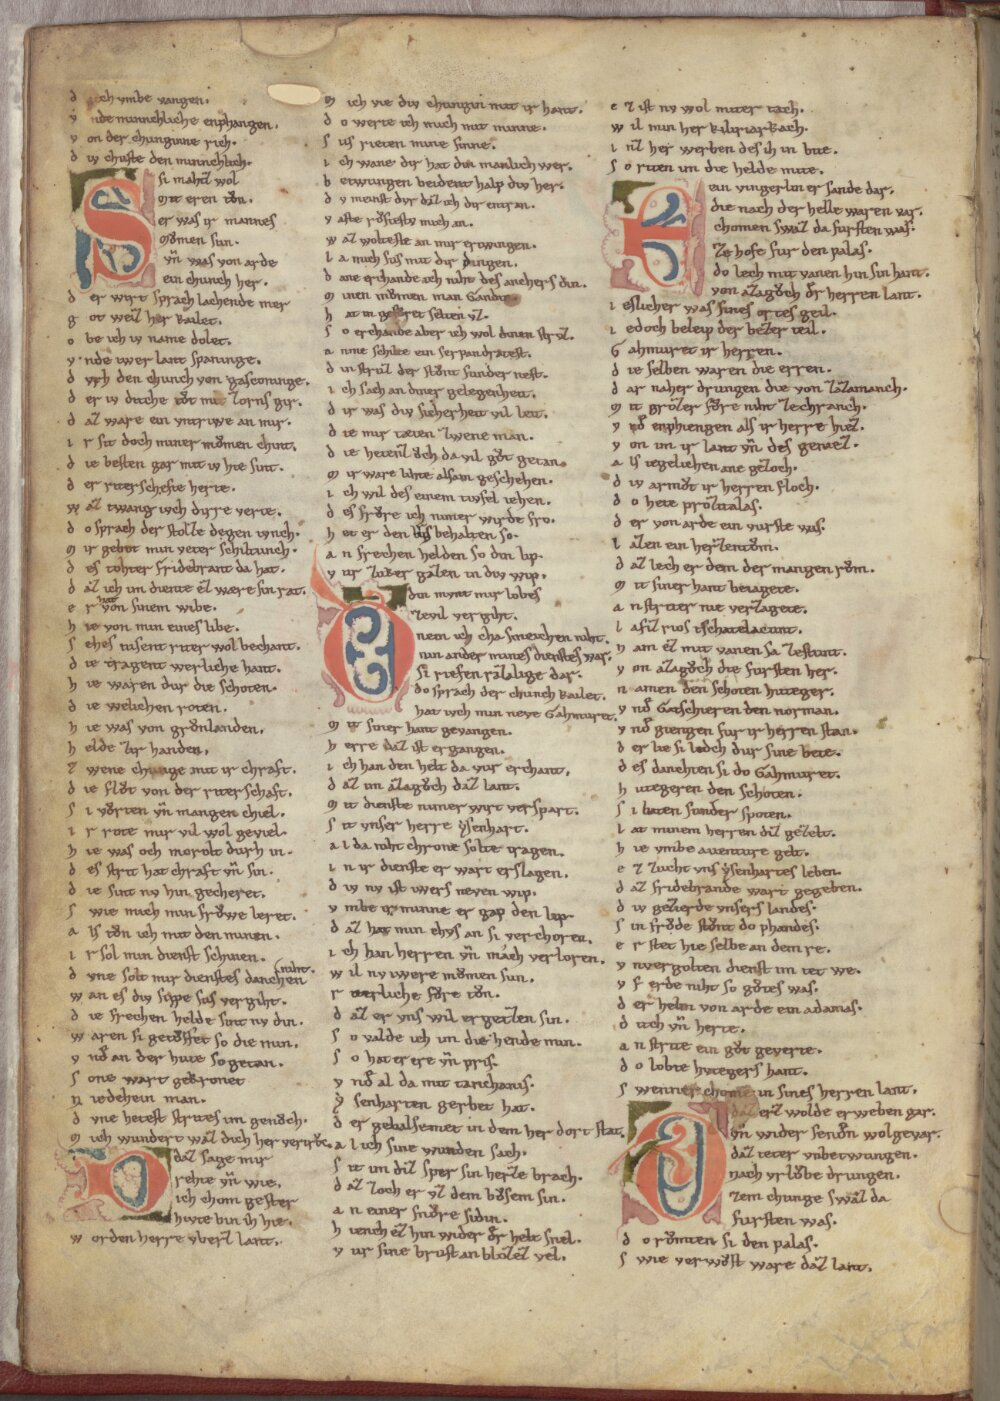 d och vmbe vangen.
v nde minnechliche enphangen.
v on der chunginne rich.
d iv chuste den minnechlich.
Si mahtz wol
mit eren tŏn.
er was ir mannes
mŏmen sun.
vn̄ was von arde
ein chunch her.
d er wirt sprach lachende mer
g ot weiz her kailet.
o be ich iv name dolet.
v nde iwer lant spaninge.
d vrh den chunch von Gascominge.
d er iv diche tŏt mit zorns gir.
d az ware ein vntriwe an mir.
i r sit doch miner mŏmen chint.
d ie besten gar mit iv hie sint.
d er riterschefte herte.
w az twang ivch dirre verte.
d o sprach der stolze degen ivnch.
m ir gebot min veter schiltunch.
d es tohter fridebrant da hat.
d az ich im diente ez were sin rat.
e r hat von sinem wibe.
h ie von min eines libe.
s ehes tusent riter wol bechant.
d ie tragent werliche hant.
h ie waren dur die schoten.
d ie welichen roten.
h ie was von grŏnlanden.
h elde zir handen.
z wene chunge mit ir chraft.
d ie flŏt von der riterschaft.
s i vŏrten vn̄ mangen chiel.
i r rote mir vil wol geviel.
h ie was och morolt durh in.
d es strit hat chraft vn̄ sin.
d ie sint nv hin gecheret.
s wie mich min frŏwe leret.
a ls tŏn ich mit den minen.
i r sol min dienst schinen.
d vne solt mir dienstes danchen niht.
w an es div sippe sus vergiht.
d ie frechen helde sint nv din.
w aren si getŏffet so die min.
v nd an der hute so getan.
s one wart gekronet
n iedehein man.
d vne hetest strites im genŏch.
m ich wundert waz dich her verirte.
daz sage mir
rehte vn̄ wie.
ich chom gester
hivte bin ih hie.
w orden herre vberz lant.
m ich vie div chungin mit ir hant.
d o werte ich mich mit minne.
s us rieten mine sinne.
i ch wane dir hat din manlich wer.
b etwungen beident halp div her.
d v meinst dvr daz ich dir entran.
v aste rŏfestv mich an.
w az woltest an mir ertwingen.
l a mich sus mit dir dingen.
d ane erchande ich niht des anchers din.
m inen mŏmen man Gandin.
h at in gefŏret selten vz.
s o erchande aber ich wol dinen struz.
a nme schilte ein serpandratest.
d in struz der stŏnt sunder nest.
i ch sach an diner gelegenheit.
d ir was div sicherheit vil leit.
d ie mir taten zwene man.
d ie hetenz ŏch da vil gŏt getan.
m ir ware lihte alsam geschehen.
i ch wil des einem tivfel iehen.
d es fŏre ich nimer wirde fro.
h et er den pris behalten so.
a n frechen helden so din lip.
v ur zuker gazen in div wip.
Din mvnt mir lobes
zevil vergiht.
nein ich cha smeichen niht.
nim ander mines dienstes war.
si riefen razalige dar.
do sprach der chunch kailet.
hat ivch min neve Gahmuret.
m it siner hant gevangen.
h erre daz ist ergangen.
i ch han den helt da vur erchant.
d az im azagŏch daz lant.
m it dienste nimer wirt verspart.
s it vnser herre ysenhart.
a l da niht chrone solte tragen.
i n ir dienste er wart erslagen.
d iv nv ist iwers neven wip.
v mbe ir minne er gap den lip.
d az hat min chvs an si verchoren.
i ch han herren vn̄ mach verloren.
w il nv iwere mŏmen sun.
r iterliche fŏre tŏn.
d az er vns wil ergetzen sin.
s o valde ich im die hende min.
s o hat er ere vn̄ pris.
v nd al da mit tanchanis.
y senharten gerbet hat.
d er gebalsemet in dem her dort stat.
a l ich sine wunden sach.
s it im diz sper sin herze brach.
d az zoch er vz dem bŏsem sin.
a n einer snŏre sidin.
h iench ez hin wider der helt snel.
v ur sine brust an blozez vel.
e z ist nv wol miter tach.
w il min her kilirjarkach.
i nz her werben des ih in bite.
s o riten im die helde mite.
Ein vingerlin er sande dar.
die nach der helle waren var.
chomen swaz da fursten was.
ze hofe fur den palas.
do lech mit vanen hin sin hant.
von azagŏch der herren lant.
i eslicher was sines ortes geil.
i edoch beleip der bezer teil.
G ahmuret ir herren.
d ie selben waren die erren.
d ar naher drungen die von zazamanch.
m it grŏzer fŏre niht zechranch.
v nd enphiengen als ir herre hiez.
v on im ir lant vn̄ des geniez.
a ls iegelichen ane gezoch.
d iv armŏt ir herren floch.
d o hete prŏzitalas.
d er von arde ein vurste was.
l azen ein herzentŏm.
d az lech er dem der mangen rŏm.
m it siner hant beiagete.
a n strite nie verzagete.
l afiz rios tschatelacunt.
n am ez mit vanen sa zestunt.
v on azagŏch die fursten her.
n amen den schoten huteger.
v nd Gatschieren den norman.
v nd giengen fur ir herren stan.
d er lie si ledech dur sine bete.
d es danchten si do Gahmuret.
h utegeren den schoten.
s i baten sunder spoten.
l at minem herren diz gezelt.
h ie vmbe aventure gelt.
e z zucht vns ysenhartes leben.
d az fridebrande wart gegeben.
d iv gezierde vnsers landes.
s in frŏde stŏnt do phandes.
e r stet hie selbe an dem re.
v nvergolten dienst im tet we.
v f erde niht so gŏtes was.
d er helm von arde ein adamas.
d ich vn̄ herte.
a n strite ein gŏt geverte.
d o lobte hvtegers hant.
s wenner chome in sines herren lant.
daz erz wolde erweben gar.
vn̄ wider senden wol gevar.
daz teter vnbetwungen.
nach vrlŏbe drungen.
zem chunge swaz da
fursten was.
d o rŏmten si den palas.
s wie verwŏst ware daz lant.